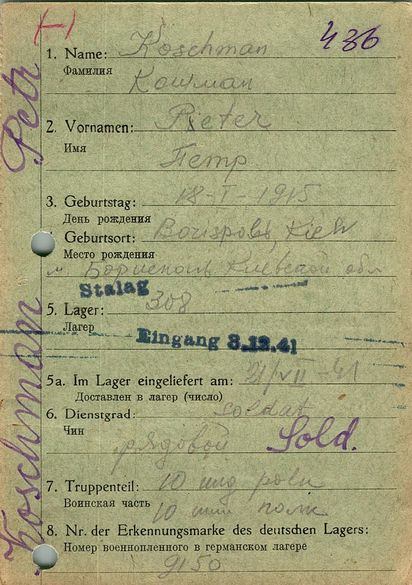 436
1. Name: Koschman
Фамилия
Кошман
2. Vornamen: Pieter
Имя
Петр
3. Geburtstag: 18-I-1915
День рождения
Geburtsort: Borispolь, Kiew
Место рождения
м. Борисполь Киевской обл
Stalag
5. Lager: 308
Лагер
Eingang 3.12.41
5a. Im Lager eingeliefert am: 21/VII-41
Доставлен в лагер (число)
6. Dienstgrad: soldat
Чин
рядовой Sold.
7. Truppenteil: 10
Воинская часть
10 полк
8. Nr. der Erkennungsmarke des deutschen Lagers:
Номер военнопленного в германском лагере
9150
Koschman Petr